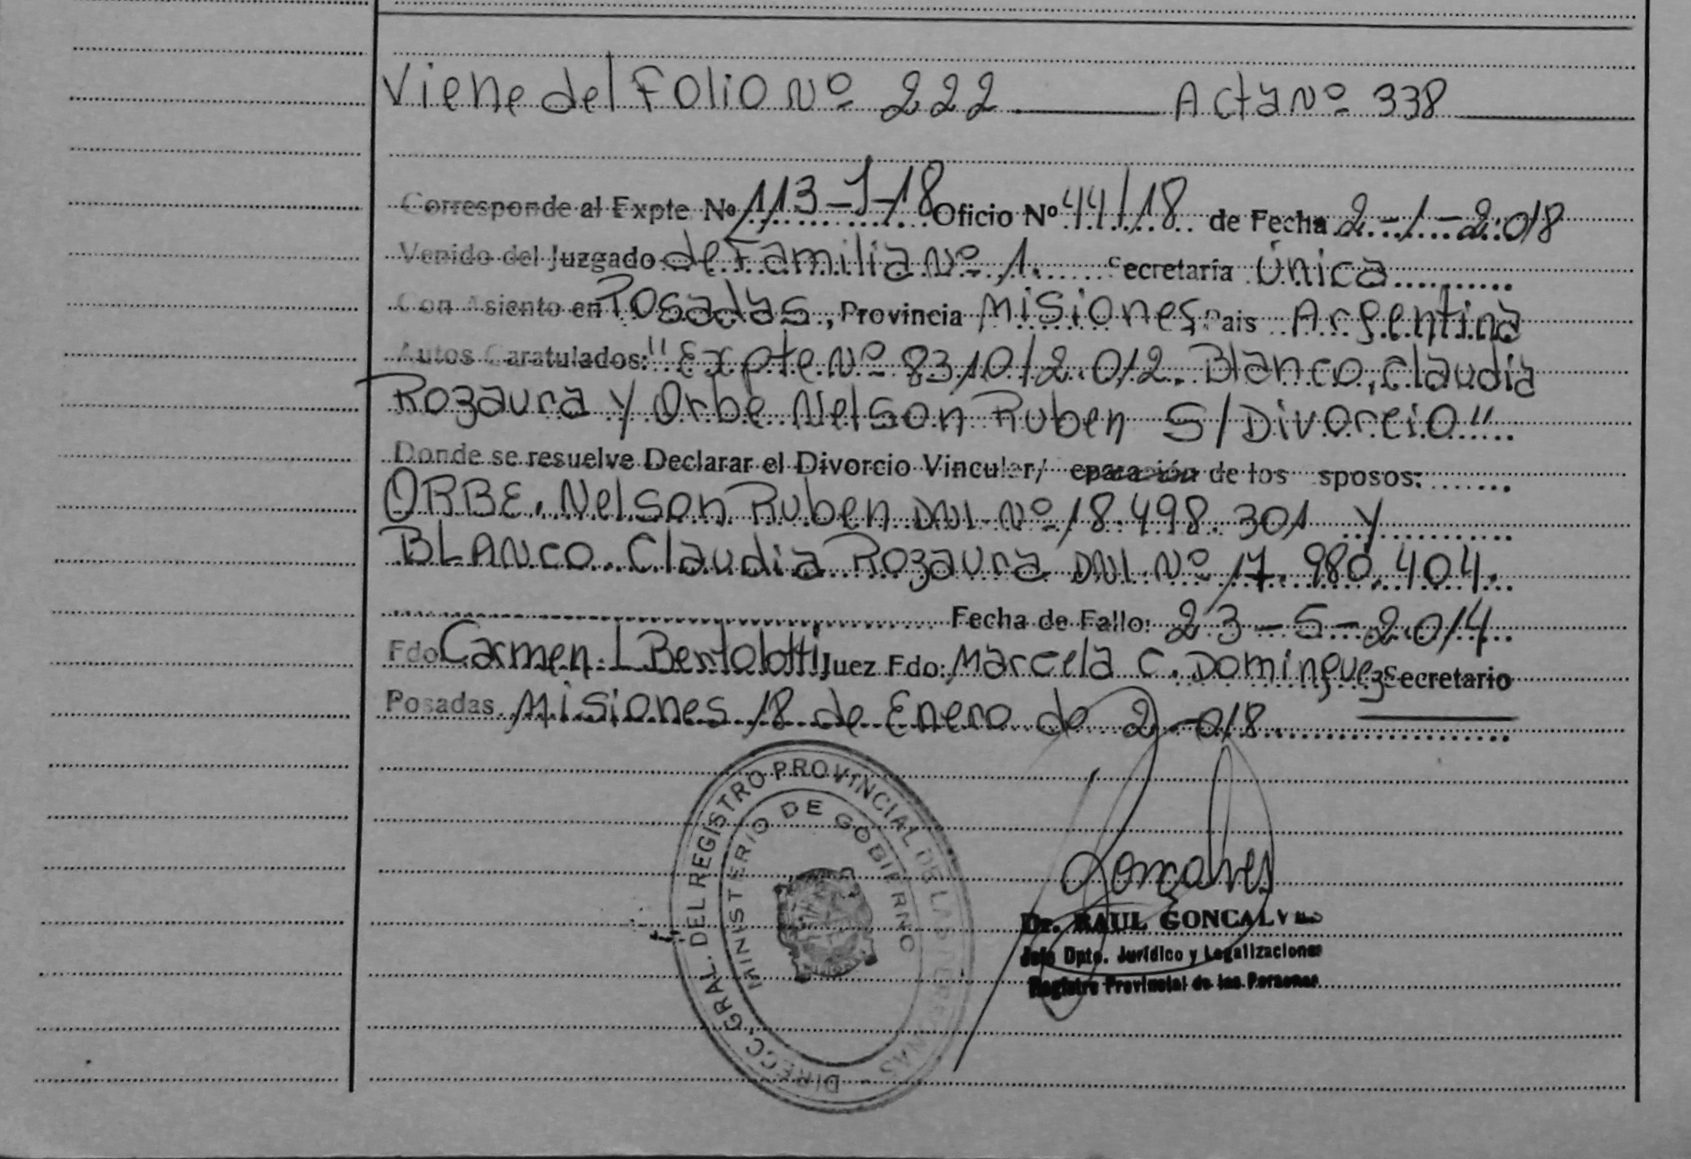 Viene del Folio Nº 222 Acta Nº 338
Corresponde al Expte Nº 113-J-18 Oficio Nº 44/18 de Fecha 2-1-2018
Venido del Juzgado de Familia Nº 1. Secretaría Única
Con Asiento en Posadas, Provincia Misiones Pais Argentina
Autos Caratulados: "Expte Nº 8310/2012. Blanco, Claudia
Rozaura y Orbe Nelson Ruben S/Divorcio"
Donde se resuelve Declarar el Divorcio Vincular/ eparación de los sposos:
ORBE, Nelson Ruben DNI Nº 18.498.301 y
BLANCO, Claudia Rozaura DNI Nº 17.980.404.
Fecha de Fallo: 23-5-2014
Fdo Carmen L Bertolotti Juez Fdo: Marcela C. Dominguez Secretario
Posadas, Misiones 18 de Enero de 2018
DIRECC. GRAL. DEL REGISTRO PROVINCIAL DE LAS PERSONAS
MINISTERIO DE GOBIERNO
Goncalves
Dr. RAUL GONCALVES
Jefe Dpto. Jurídico y Legalizaciones
Registro Provincial de las Personas